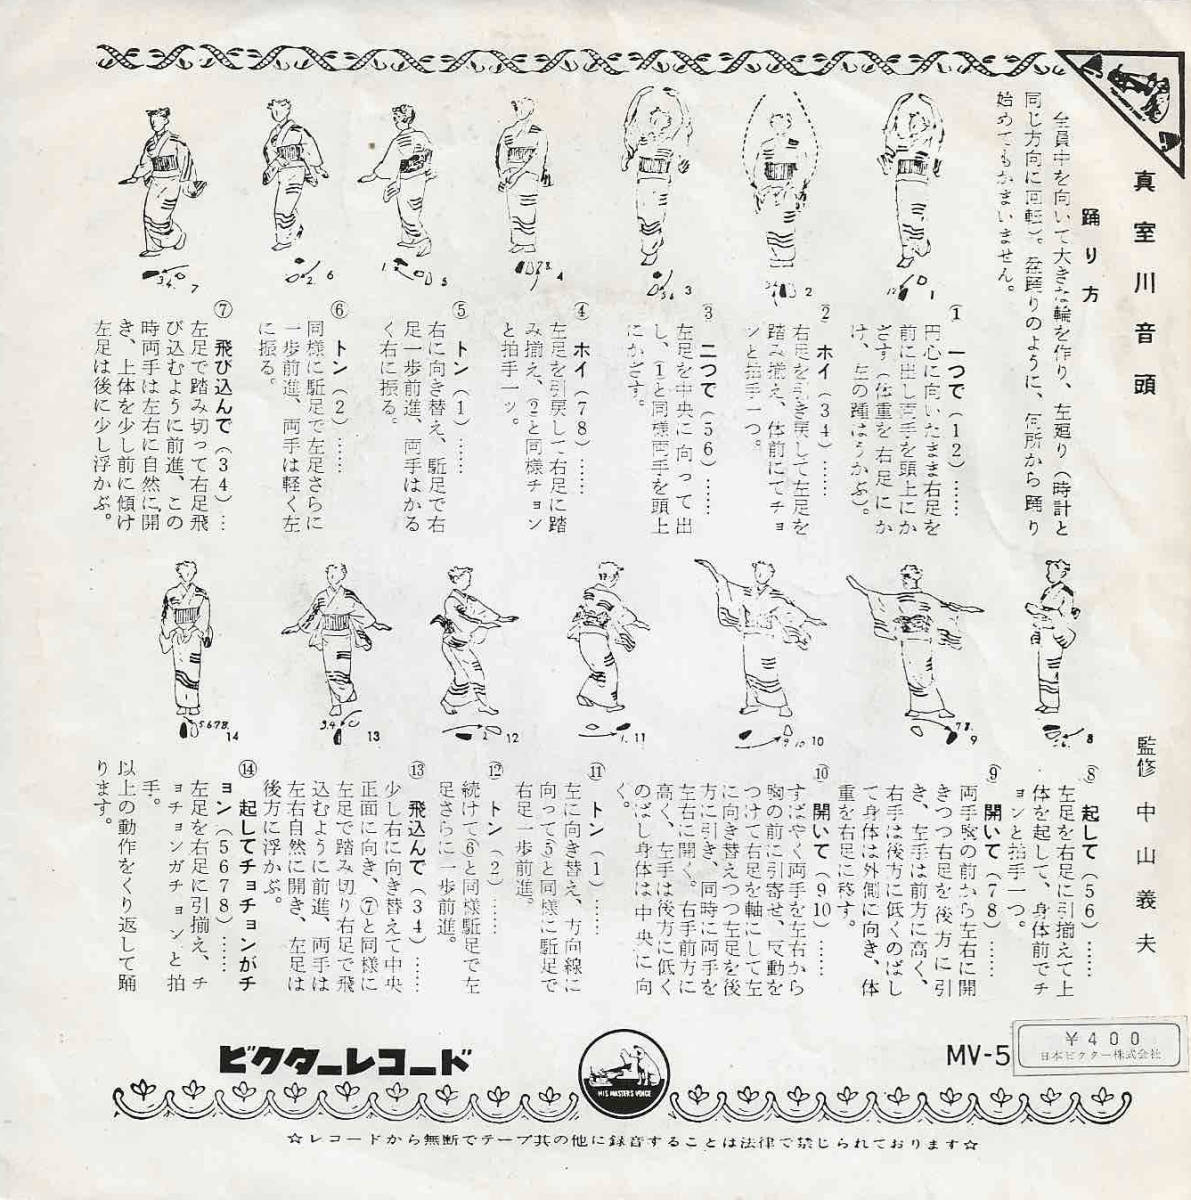 真室川音頭
監修 中山義夫
踊り方
全員中を向いて大きな輪を作り、左廻り（時計と
同じ方向に回転）。盆踊りのように、何所から踊り
始めてもかまいません。
① 一つで（12）……
円心に向いたまま右足を
前に出し両手を頭上にか
ざす（体重を右足にか
け、左の踵はうかぶ）。
② ホイ（34）……
右足を引き戻して左足を
踏み揃え、体前にてチョ
ンと拍手一つ。
③ 二つで（56）……
左足を中央に向って出
し、（1と同様両手を頭上
にかざす。
④ ホイ（78）……
左足を引戻して右足に踏
み揃え、（2と同様チョン
と拍手一ッ。
⑤ トン（1）……
右に向き替え、駈足で右
足一歩前進、両手はかる
く右に振る。
⑥ トン（2）……
同様に駈足で左足さらに
一歩前進、両手は軽く左
に振る。
⑦ 飛び込んで（34）…
左足で踏み切って右足飛
び込むように前進、この
時両手は左右に自然に開
き、上体を少し前に傾け
左足は後に少し浮かぶ。
1
2
3
4
5
6
7
⑧ 起して（56）……
左足を右足に引揃えて上
体を起して、身体前でチ
ョンと拍手一つ。
⑨ 開いて（78）……
両手胸の前から左右に開
きつつ右足を後方に引
き、左手は前方に高く、
右手は後方に低くのばし
て身体は外側に向き、体
重を右足に移す。
⑩ 開いて（910）……
すばやく両手を左右から
胸の前に引寄せ、反動を
つけて右足を軸にして左
に向き替えつつ左足を後
方に引き、同時に両手を
左右に開く。右手前方に
高く、左手は後方に低く
のばし身体は中央に向
く。
⑪ トン（1）……
左に向き替え、方向線に
向って⑤と同様に駈足で
右足一歩前進。
⑫ トン（2）……
続けて⑥と同様駈足で左
足さらに一歩前進。
⑬ 飛込んで（34）……
少し右に向き替えて中央
正面に向き、⑦と同様に
左足で踏み切り右足で飛
込むように前進、両手は
左右自然に開き、左足は
後方に浮かぶ。
⑭ 起してチョチョンがチ
ョン（5678）……
左足を右足に引揃え、チ
ョチョンガチョンと拍
手。
以上の動作をくり返して踊
ります。
8
9
10
11
12
13
14
ビクターレコード
HIS MASTER'S VOICE
MV-5
￥400
日本ビクター株式会社
☆レコードから無断でテープ其の他に録音することは法律で禁じられております☆